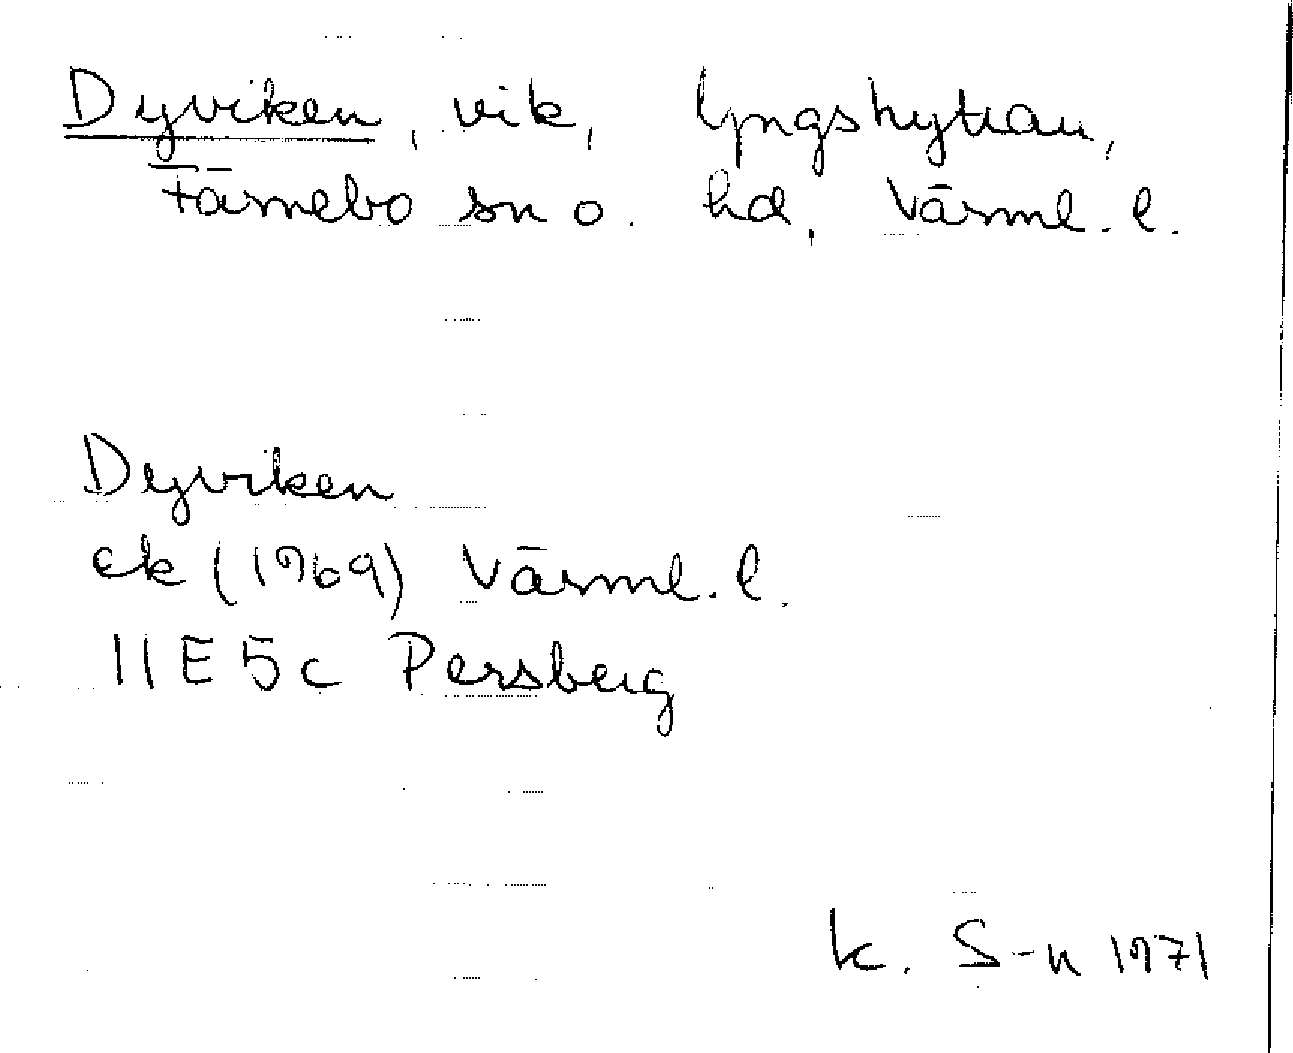 Dyviken, vik, lyngshyttan,
Färnebo sn o. hd, Värml. l.
Dyviken
ek (1969) Värml. l.
11E 5c Persberg
K. S-n 1971